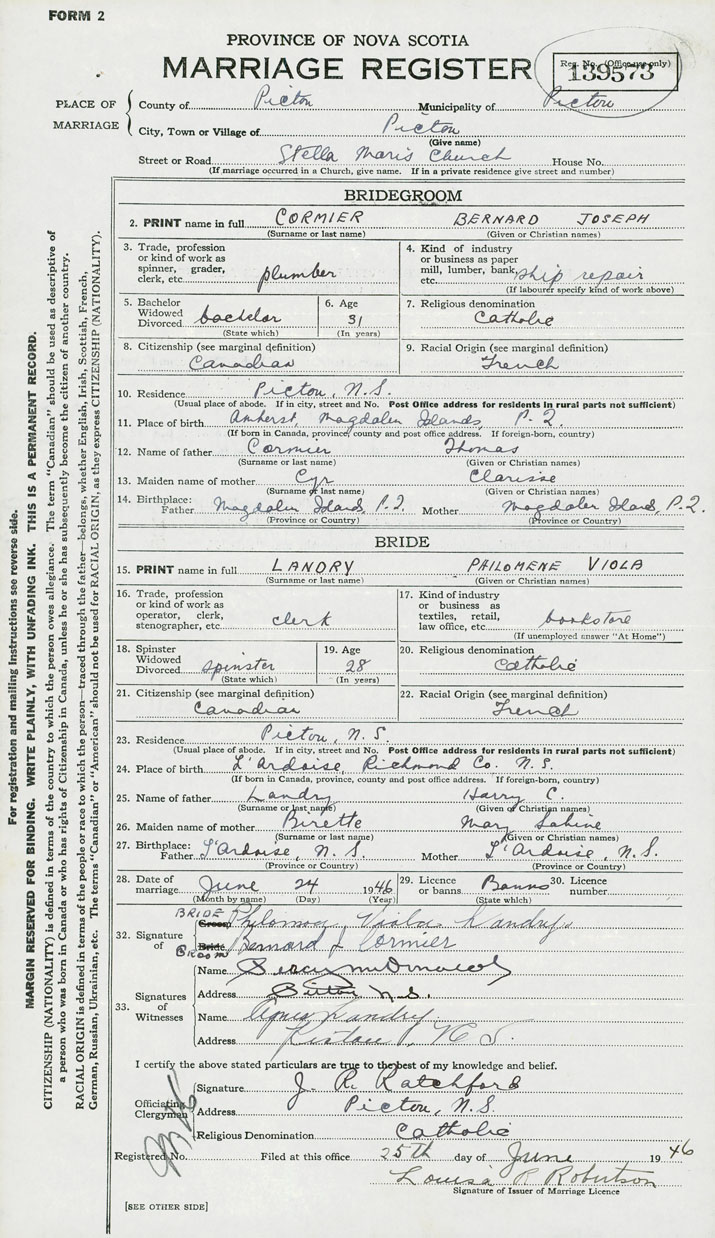 FORM 2
PROVINCE OF NOVA SCOTIA
MARRIAGE REGISTER
Reg. No. (Office use only)
139573
PLACE OF MARRIAGE
County of Pictou Municipality of Pictou
City, Town or Village of Pictou
(Give name)
Street or Road Stella Maris Church House No.
(If marriage occurred in a Church, give name. If in a private residence give street and number)
BRIDEGROOM
2. PRINT name in full CORMIER BERNARD JOSEPH
(Surname or last name) (Given or Christian names)
3. Trade, profession or kind of work as spinner, grader, clerk, etc. plumber
4. Kind of industry or business as paper mill, lumber, bank, etc. ship repair
(If labourer specify kind of work above)
5. Bachelor Widowed Divorced bachelor
(State which)
6. Age 31
(In years)
7. Religious denomination Catholic
8. Citizenship (see marginal definition) Canadian
9. Racial Origin (see marginal definition) French
10. Residence Pictou, N.S.
(Usual place of abode. If in city, street and No. Post Office address for residents in rural parts not sufficient)
11. Place of birth Amherst, Magdalen Islands, P.Q.
(If born in Canada, province, county and post office address. If foreign-born, country)
12. Name of father Cormier Thomas
(Surname or last name) (Given or Christian names)
13. Maiden name of mother Cyr Clarisse
(Surname or last name) (Given or Christian names)
14. Birthplace: Father Magdalen Islands, P.Q. Mother Magdalen Islands, P.Q.
(Province or Country) (Province or Country)
BRIDE
15. PRINT name in full LANDRY PHILOMENE VIOLA
(Surname or last name) (Given or Christian names)
16. Trade, profession or kind of work as operator, clerk, stenographer, etc. clerk
17. Kind of industry or business as textiles, retail, law office, etc. bookstore
(If unemployed answer "At Home")
18. Spinster Widowed Divorced spinster
(State which)
19. Age 28
(In years)
20. Religious denomination Catholic
21. Citizenship (see marginal definition) Canadian
22. Racial Origin (see marginal definition) French
23. Residence Pictou, N.S.
(Usual place of abode. If in city, street and No. Post Office address for residents in rural parts not sufficient)
24. Place of birth L'Ardoise, Richmond Co. N.S.
(If born in Canada, province, county and post office address. If foreign-born, country)
25. Name of father Landry Harry C.
(Surname or last name) (Given or Christian names)
26. Maiden name of mother Birette Mary Sabine
(Surname or last name) (Given or Christian names)
27. Birthplace: Father L'Ardoise, N.S. Mother L'Ardoise, N.S.
(Province or Country) (Province or Country)
28. Date of marriage June 24 1946
(Month by name) (Day) (Year)
29. Licence or banns Banns
(State which)
30. Licence number
32. Signature of
BRIDE Groom Viola Landry
Bride GROOM Bernard J Cormier
33. Signatures of Witnesses
Name
Address Pictou N.S.
Name Agnes Landry
Address Pictou, N.S.
I certify the above stated particulars are true to the best of my knowledge and belief.
Officiating Clergyman
Signature J. R. Ratchford
Address Pictou, N.S.
Religious Denomination Catholic
Registered No. Filed at this office 25th day of June 1946
Louisa R Robertson
Signature of Issuer of Marriage Licence
[SEE OTHER SIDE]
For registration and mailing instructions see reverse side.
MARGIN RESERVED FOR BINDING. WRITE PLAINLY, WITH UNFADING INK. THIS IS A PERMANENT RECORD.
CITIZENSHIP (NATIONALITY) is defined in terms of the country to which the person owes allegiance. The term "Canadian" should be used as descriptive of
a person who was born in Canada or who has rights of Citizenship in Canada, unless he or she has subsequently become the citizen of another country.
RACIAL ORIGIN is defined in terms of the people or race to which the person—traced through the father—belongs, whether English, Irish, Scottish, French,
German, Russian, Ukrainian, etc. The terms "Canadian" or "American" should not be used for RACIAL ORIGIN, as they express CITIZENSHIP (NATIONALITY).